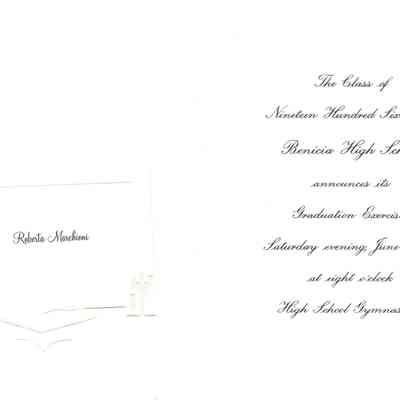 Roberta Marchioni
The Class of
Nineteen Hundred Six
Benicia High Sc
announces its
Graduation Exercis
Saturday evening, June
at eight o'clock
High School Gymnas